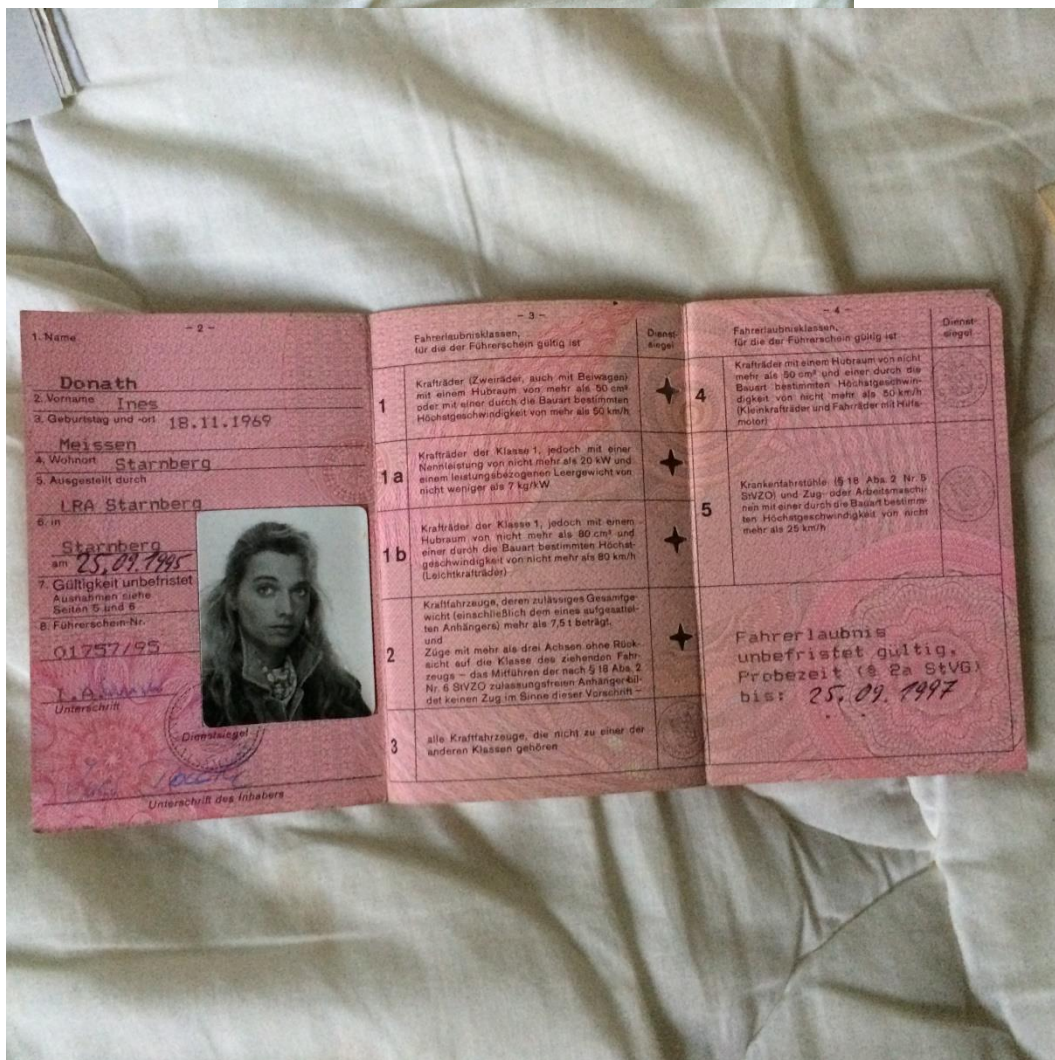 - 2 -
1. Name
Donath
2. Vorname Ines
3. Geburtstag und -ort 18.11.1969
Meissen
4. Wohnort Starnberg
5. Ausgestellt durch
LRA Starnberg
6. in
Starnberg
am 25.09.1995
7. Gültigkeit unbefristet
Ausnahmen siehe
Seiten 5 und 6
8. Führerschein-Nr.
01757/95
I.A.
Unterschrift
Dienstsiegel
Unterschrift des Inhabers
- 3 -
Fahrerlaubnisklassen,
für die der Führerschein gültig ist
Dienst-
siegel
1
Krafträder (Zweiräder, auch mit Beiwagen)
mit einem Hubraum von mehr als 50 cm³
oder mit einer durch die Bauart bestimmten
Höchstgeschwindigkeit von mehr als 50 km/h
1a
Krafträder der Klasse 1, jedoch mit einer
Nennleistung von nicht mehr als 20 kW und
einem leistungsbezogenen Leergewicht von
nicht weniger als 7 kg/kW
1b
Krafträder der Klasse 1, jedoch mit einem
Hubraum von nicht mehr als 80 cm³ und
einer durch die Bauart bestimmten Höchst-
geschwindigkeit von nicht mehr als 80 km/h
(Leichtkrafträder)
2
Kraftfahrzeuge, deren zulässiges Gesamtge-
wicht (einschließlich dem eines aufgesattel-
ten Anhängers) mehr als 7,5 t beträgt,
und
Züge mit mehr als drei Achsen ohne Rück-
sicht auf die Klasse des ziehenden Fahr-
zeugs – das Mitführen der nach § 18 Abs. 2
Nr. 6 StVZO zulassungsfreien Anhänger bil-
det keinen Zug im Sinne dieser Vorschrift –
3
alle Kraftfahrzeuge, die nicht zu einer der
anderen Klassen gehören
- 4 -
Fahrerlaubnisklassen,
für die der Führerschein gültig ist
Dienst-
siegel
4
Krafträder mit einem Hubraum von nicht
mehr als 50 cm³ und einer durch die
Bauart bestimmten Höchstgeschwin-
digkeit von nicht mehr als 50 km/h
(Kleinkrafträder und Fahrräder mit Hilfs-
motor)
5
Krankenfahrstühle (§ 18 Abs. 2 Nr. 5
StVZO) und Zug- oder Arbeitsmaschi-
nen mit einer durch die Bauart bestimm-
ten Höchstgeschwindigkeit von nicht
mehr als 25 km/h
Fahrerlaubnis
unbefristet gültig.
Probezeit (§ 2a StVG)
bis: 25.09.1997